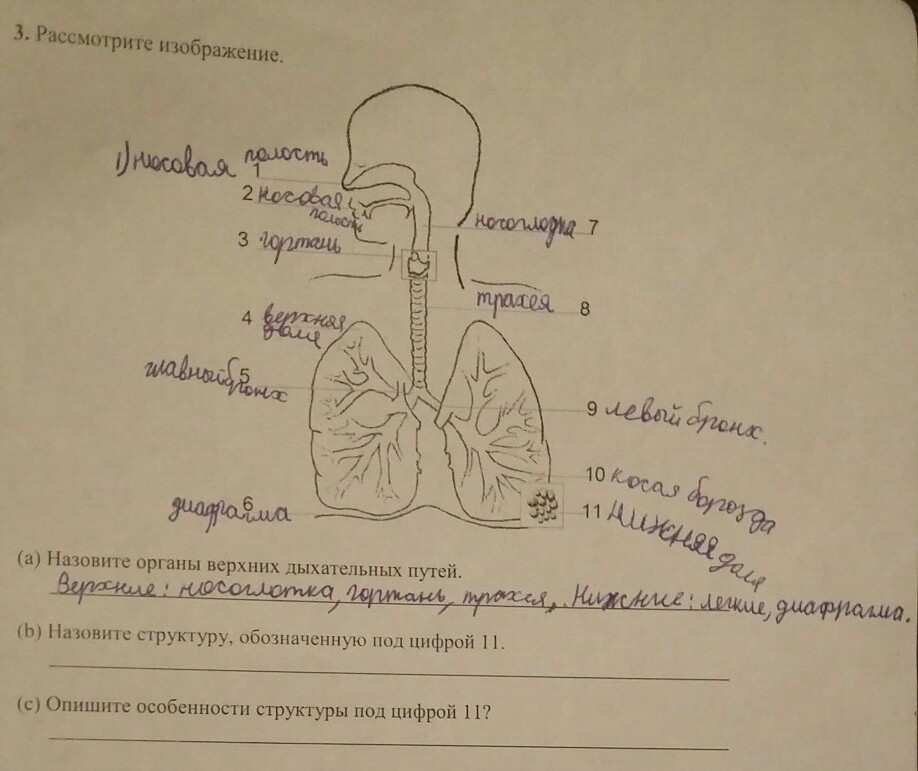 3. Рассмотрите изображение.
1) носовая полость
1
2 носовая
полость
3 гортань
носоглодка 7
трахея 8
4 верхняя
доля
главный бронх
5
9 левый бронх.
10 косая борозда
диафрагма
6
11 Нижняя доля
(a) Назовите органы верхних дыхательных путей.
Верхние: носоглотка, гортань, трахея, Нижние: легкие, диафрагма.
(b) Назовите структуру, обозначенную под цифрой 11.
(c) Опишите особенности структуры под цифрой 11?